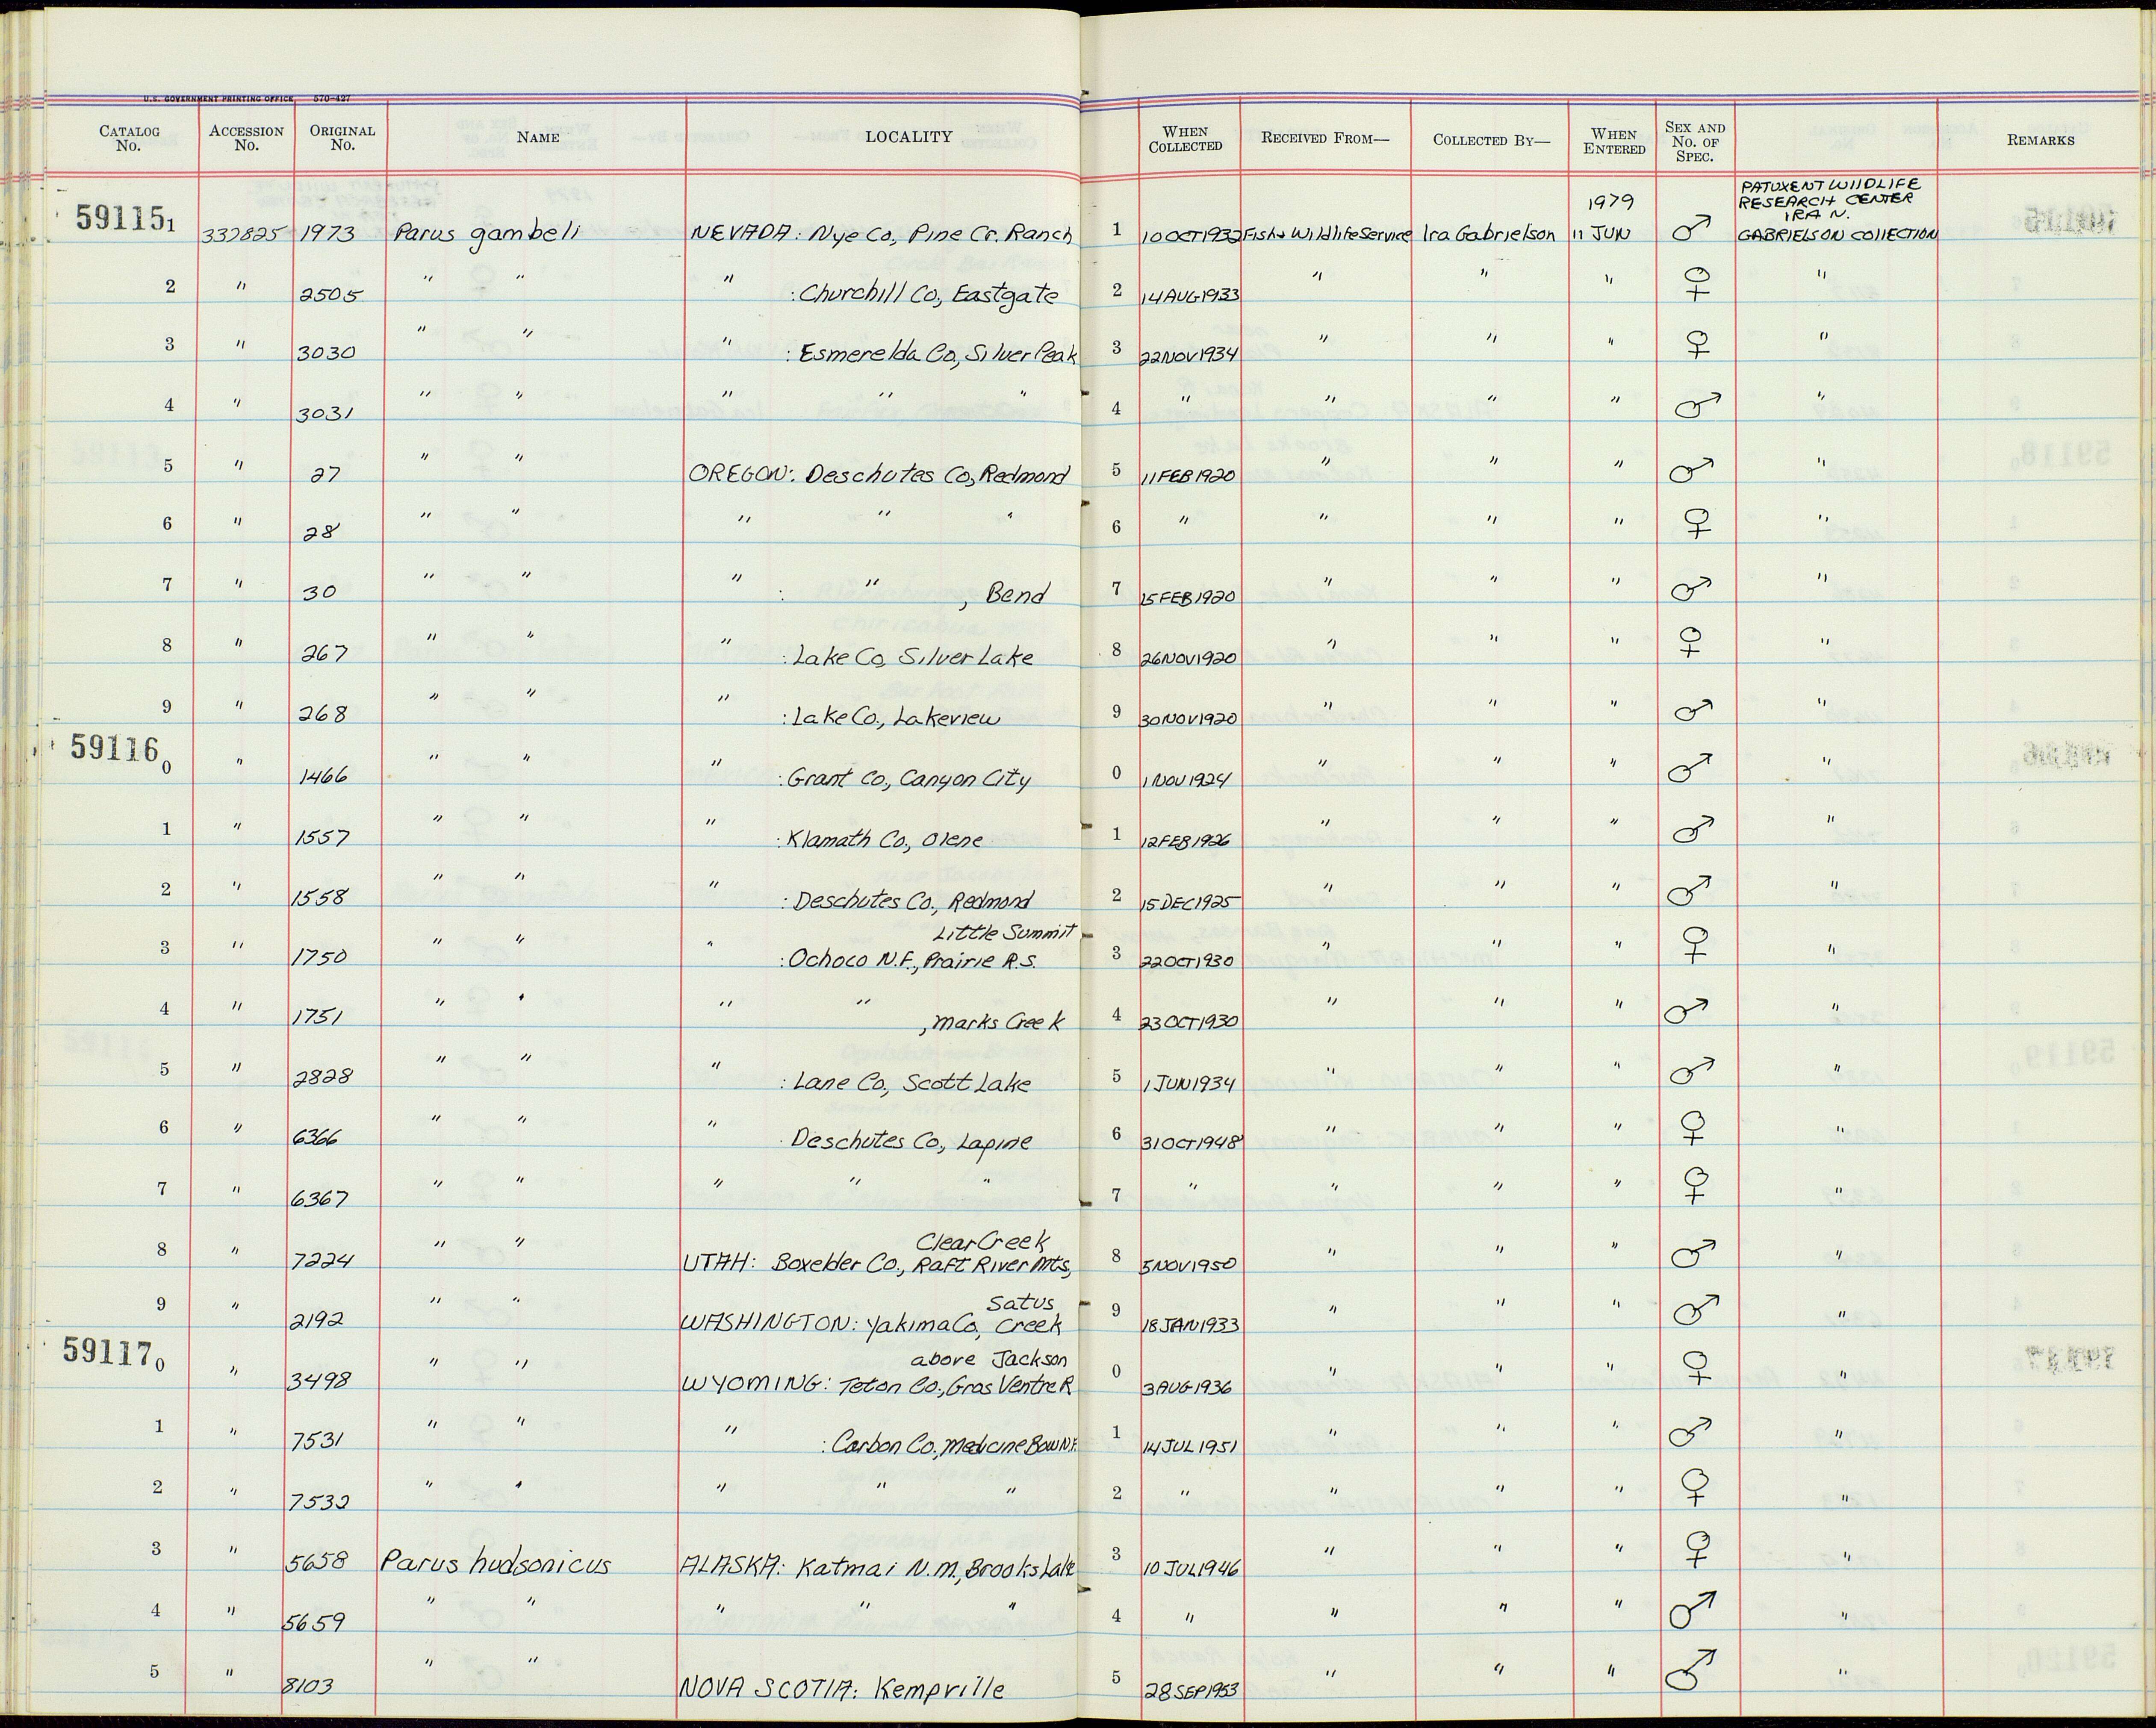 U.S. GOVERNMENT PRINTING OFFICE 570-427
CATALOG No. ACCESSION No. ORIGINAL No. NAME LOCALITY WHEN COLLECTED RECEIVED FROM— COLLECTED BY— WHEN ENTERED SEX AND No. OF SPEC. REMARKS
PATUXENT WILDLIFE
RESEARCH CENTER
1979 IRA N.
59115 1 332825 1973 Parus gambeli NEVADA: Nye Co, Pine Cr. Ranch 1 10 OCT 1932 Fish & Wildlife Service Ira Gabrielson 11 JUN ♂ GABRIELSON COLLECTION
2 " 2505 " " " : Churchill Co, Eastgate 2 14 AUG 1933 " " " ♀ "
3 " 3030 " " " : Esmerelda Co, Silver Peak 3 22 NOV 1934 " " " ♀ "
4 " 3031 " " " " " 4 " " " " ♂ "
5 " 27 " " OREGON: Deschutes Co, Redmond 5 11 FEB 1920 " " " ♂ "
6 " 28 " " " " " 6 " " " " ♀ "
7 " 30 " " " : " , Bend 7 15 FEB 1920 " " " ♂ "
8 " 267 " " " : Lake Co, Silver Lake 8 26 NOV 1920 " " " ♀ "
9 " 268 " " " : Lake Co., Lakeview 9 30 NOV 1920 " " " ♂ "
59116 0 " 1466 " " " : Grant Co., Canyon City 0 1 NOV 1924 " " " ♂ "
1 " 1557 " " " : Klamath Co., Olene 1 12 FEB 1926 " " " ♂ "
2 " 1558 " " " : Deschutes Co., Redmond 2 15 DEC 1925 " " " ♂ "
Little Summit
3 " 1750 " " " : Ochoco N.F., Prairie R.S. 3 22 OCT 1930 " " " ♀ "
4 " 1751 " " " " , Marks Creek 4 23 OCT 1930 " " " ♂ "
5 " 2828 " " " : Lane Co, Scott Lake 5 1 JUN 1934 " " " ♂ "
6 " 6366 " " " Deschutes Co, Lapine 6 31 OCT 1948 " " " ♀ "
7 " 6367 " " " " " 7 " " " " ♀ "
Clear Creek
8 " 7224 " " UTAH: Boxelder Co., Raft River Mts, 8 5 NOV 1950 " " " ♂ "
Satus
9 " 2192 " " WASHINGTON: Yakima Co, Creek 9 18 JAN 1933 " " " ♂ "
above Jackson
59117 0 " 3498 " " WYOMING: Teton Co., Gros Ventre R 0 3 AUG 1936 " " " ♀ "
1 " 7531 " " " : Carbon Co, Medicine Bow N.F. 1 14 JUL 1951 " " " ♂ "
2 " 7532 " " " " " 2 " " " " ♀ "
3 " 5658 Parus hudsonicus ALASKA: Katmai N.M., Brooks Lake 3 10 JUL 1946 " " " ♀ "
4 " 5659 " " " " " 4 " " " " ♂ "
5 " 8103 " " NOVA SCOTIA: Kempville 5 28 SEP 1953 " " " ♂ "